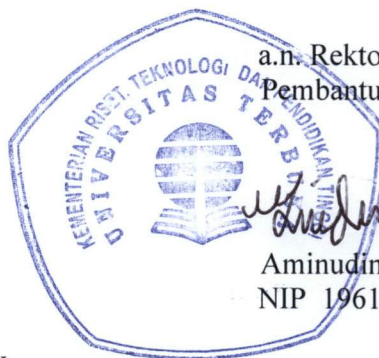 a.n. Rekto
Pembantu
KEMENTERIAN RISET, TEKNOLOGI DAN PENDIDIKAN TINGGI
UNIVERSITAS TERBU
Aminudin
NIP 1961